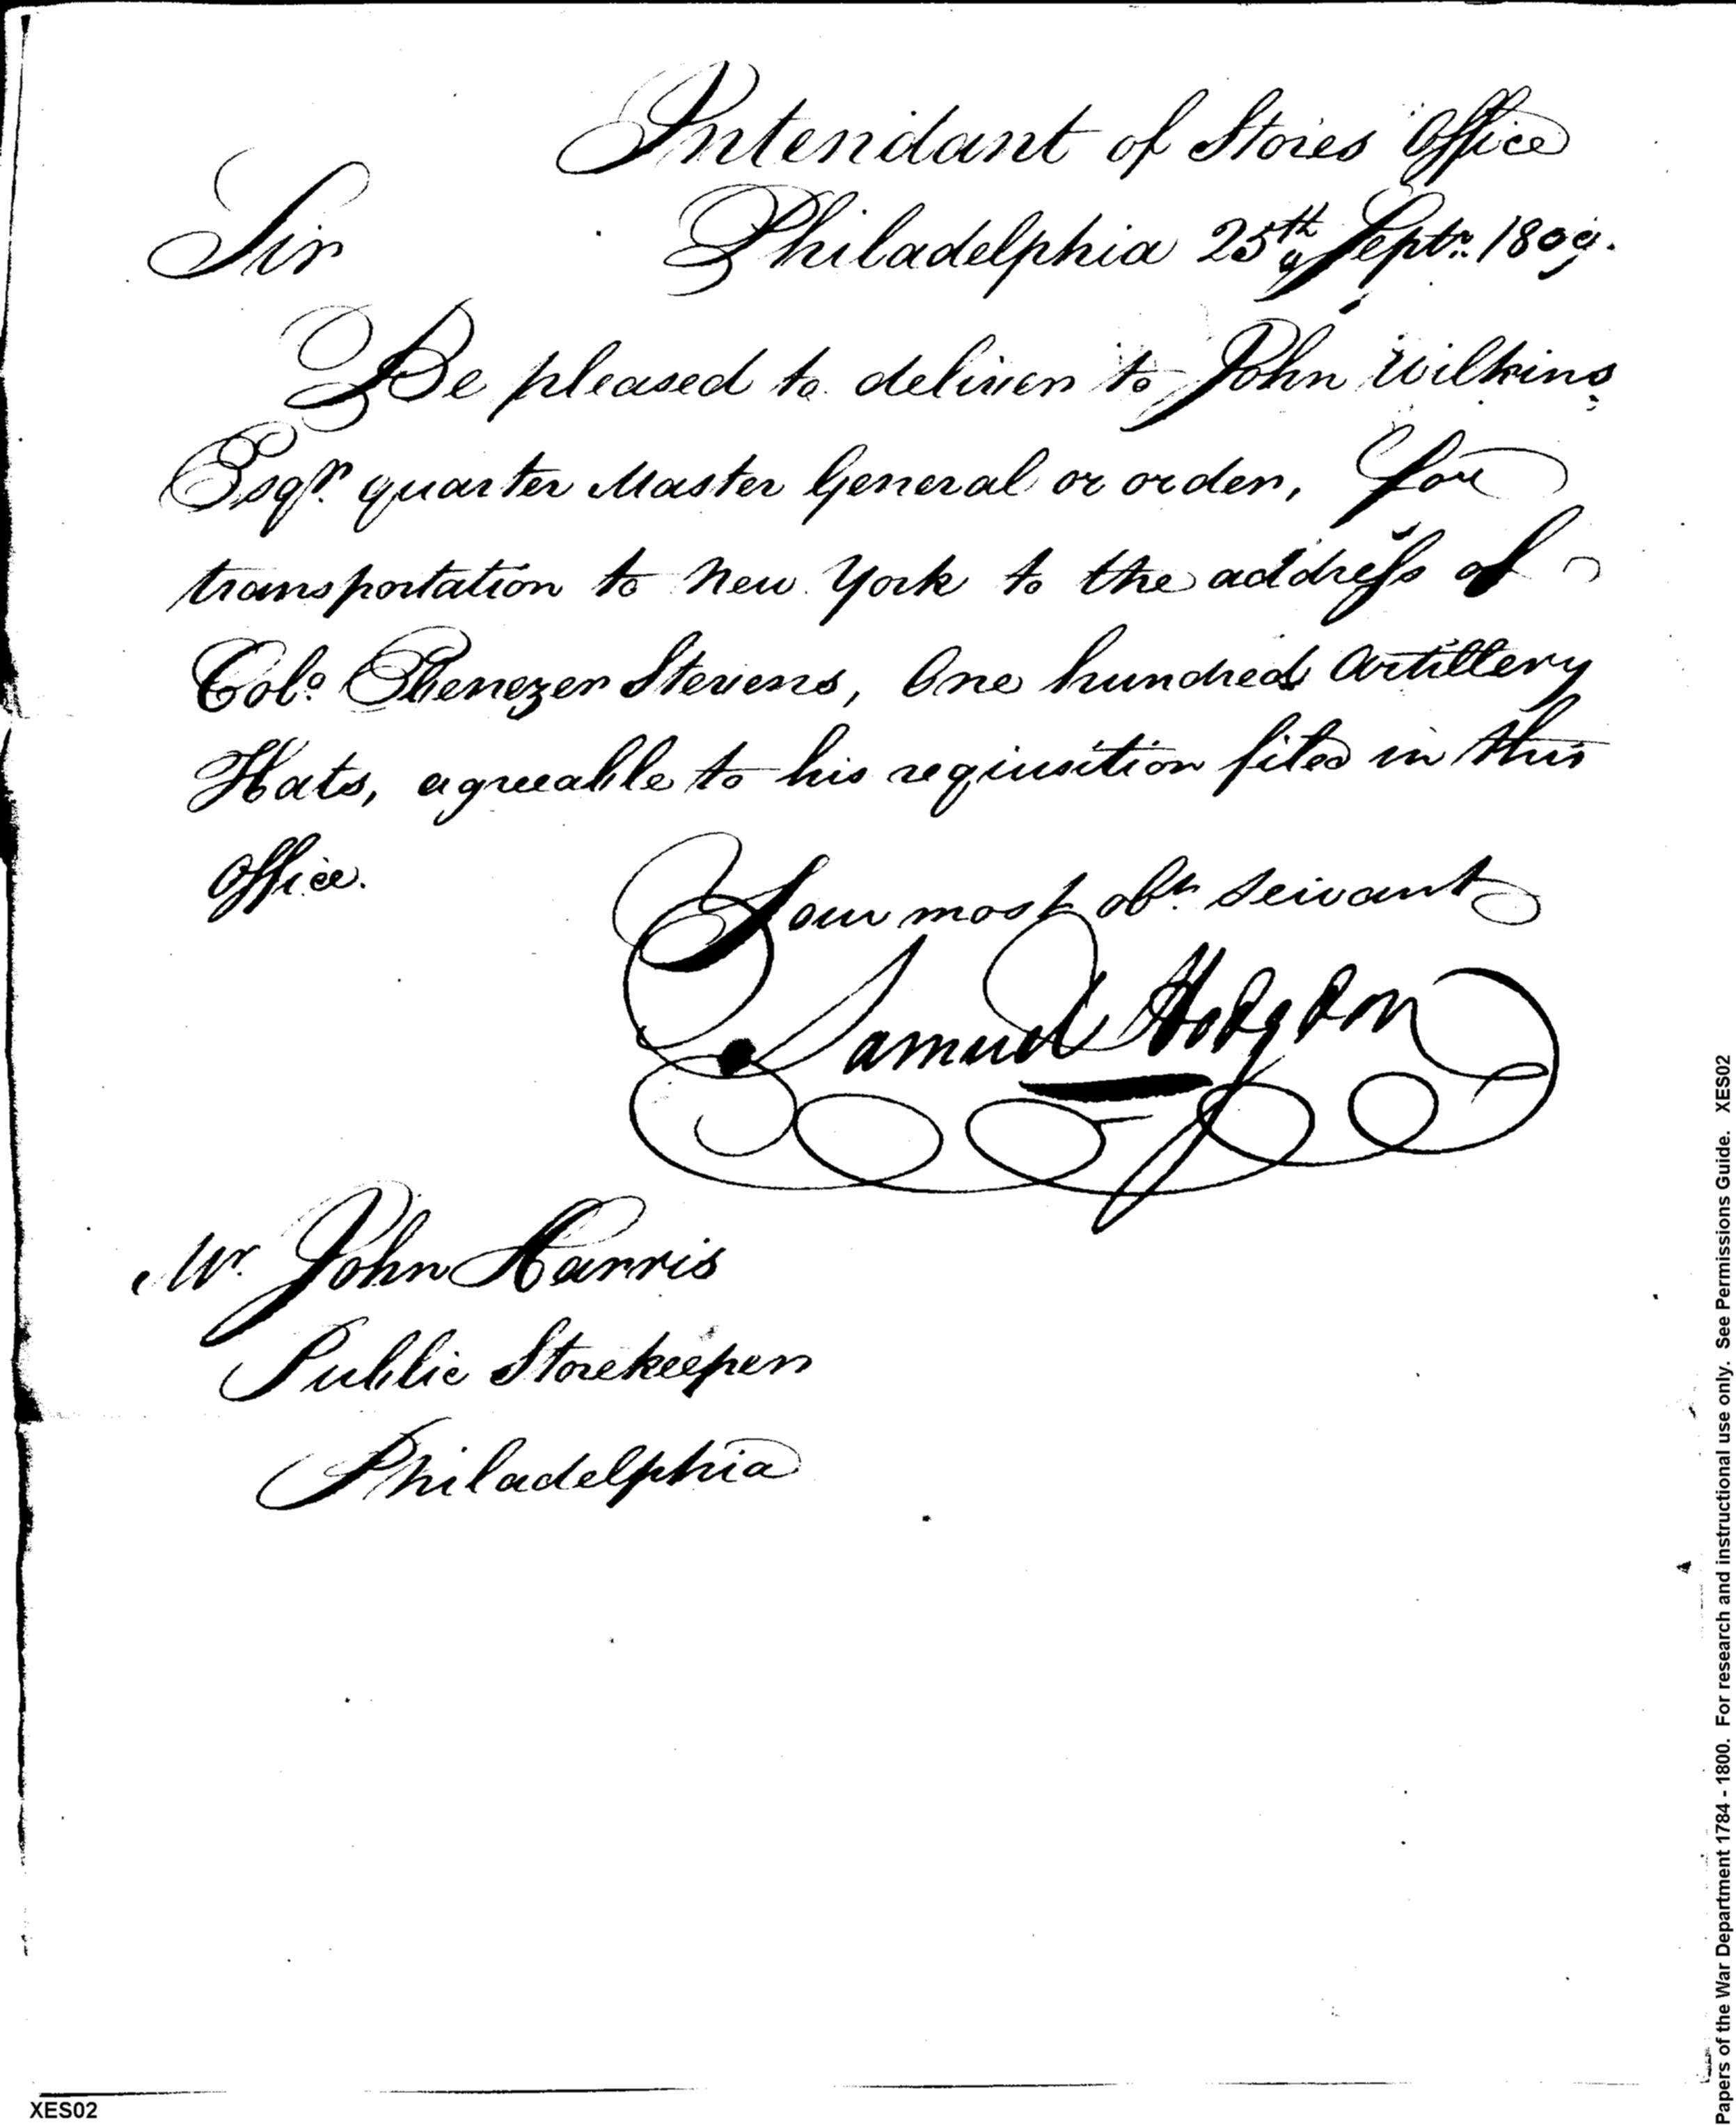 Intendant of Stores Office
Sir Philadelphia 25th of Septr. 1800.
Be pleased to deliver to John Wilkins
Esqr. quarter Master General or order, for
transportation to New York to the addreſs of
Colo. Ebenezer Stevens, One hundred Artillery
Hats, agreeable to his requisition filed in this
Office.
Your most obt. servant
Samuel Hodgdon
Mr. John Harris
Public Storekeeper
Philadelphia
XES02
Papers of the War Department 1784 - 1800. For research and instructional use only. See Permissions Guide. XES02